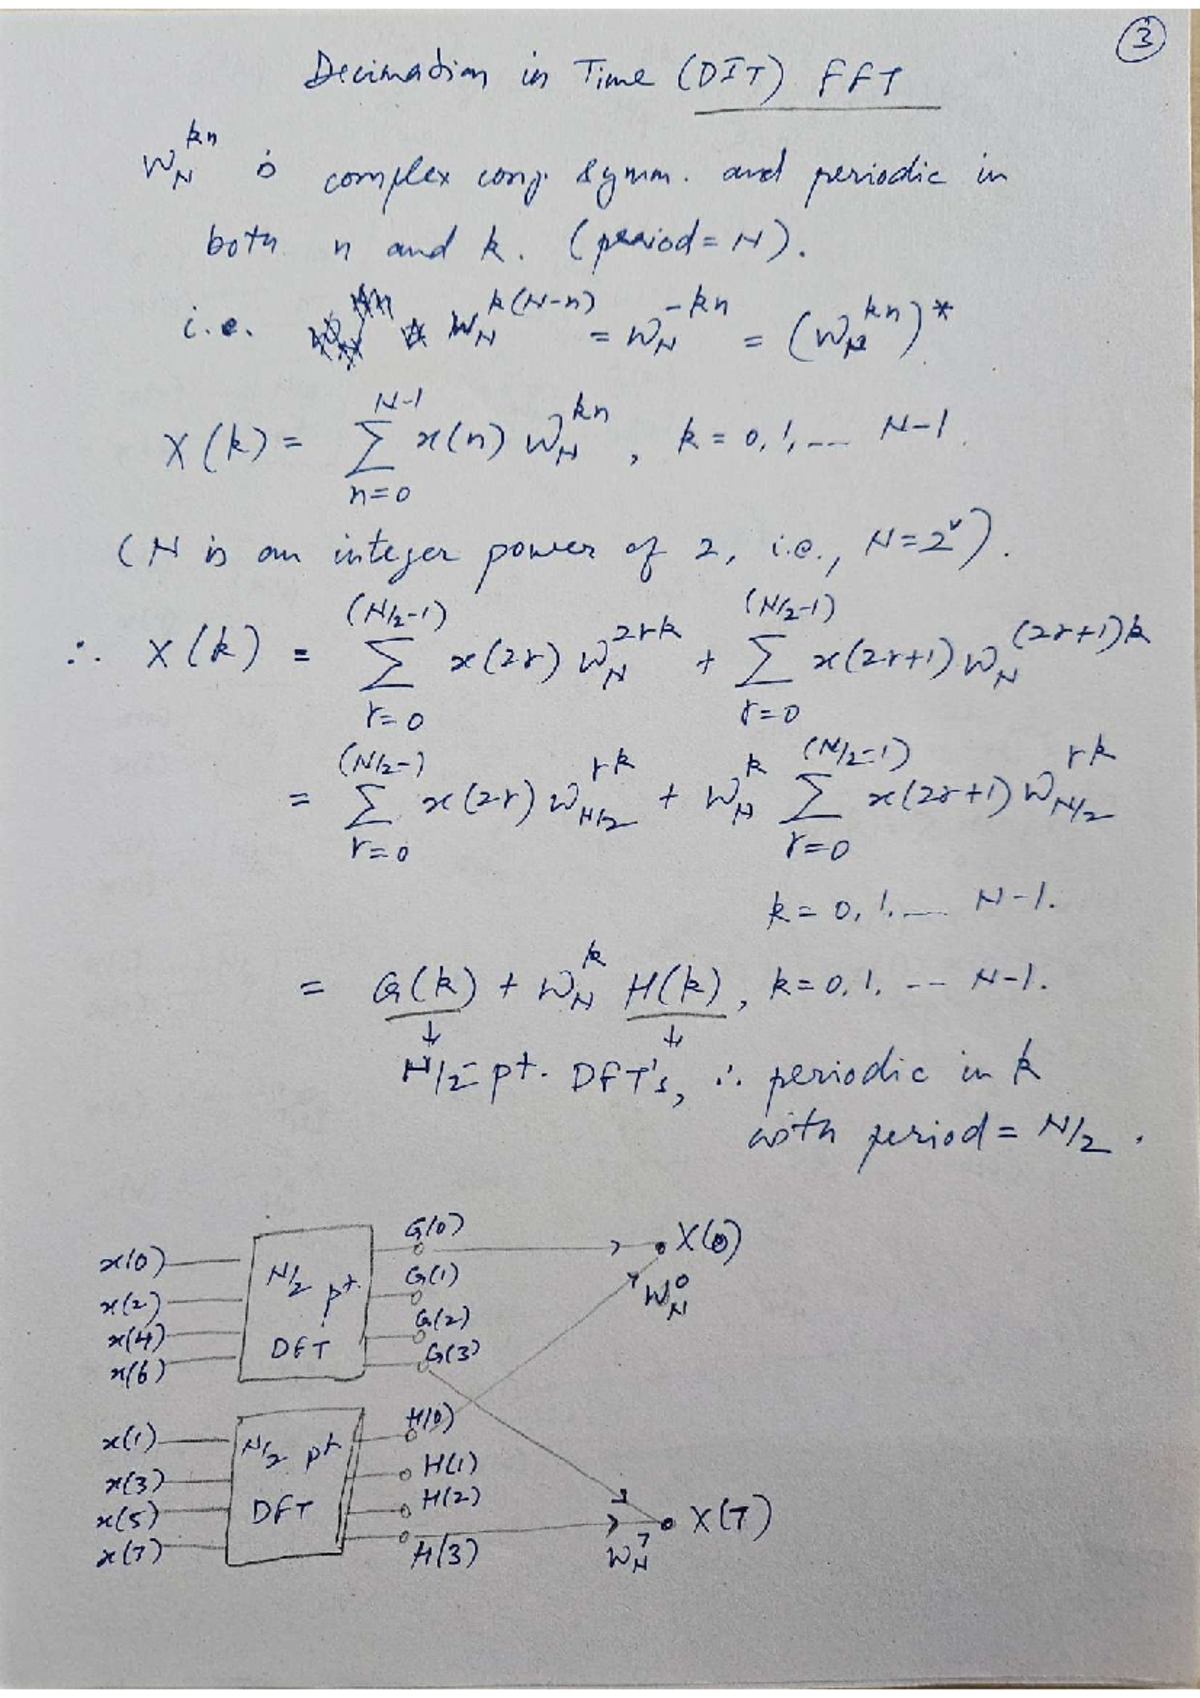 3
Decimation in Time (DIT) FFT
W_N^{kn} is complex conj. symm. and periodic in
both n and k. (period = N).
i.e. W_N^{k(N-n)} = W_N^{-kn} = (W_N^{kn})*
X(k) = Σ_{n=0}^{N-1} x(n) W_N^{kn}, k = 0, 1, --- N-1.
(N is an integer power of 2, i.e., N=2^ν).
∴ X(k) = Σ_{r=0}^{(N/2-1)} x(2r) W_N^{2rk} + Σ_{r=0}^{(N/2-1)} x(2r+1) W_N^{(2r+1)k}
= Σ_{r=0}^{(N/2-)} x(2r) W_{N/2}^{rk} + W_N^k Σ_{r=0}^{(N/2-1)} x(2r+1) W_{N/2}^{rk}
k = 0, 1, --- N-1.
= G(k) + W_N^k H(k), k = 0, 1, --- N-1.
↓ ↓
N/2-pt. DFT's, ∴ periodic in k
with period = N/2.
x(0) G(0) X(0)
x(2) N/2 pt. G(1) W_N^0
x(4) G(2)
x(6) DFT G(3)
x(1) N/2 pt H(0)
x(3) H(1)
x(5) DFT H(2) X(7)
x(7) H(3) W_N^7